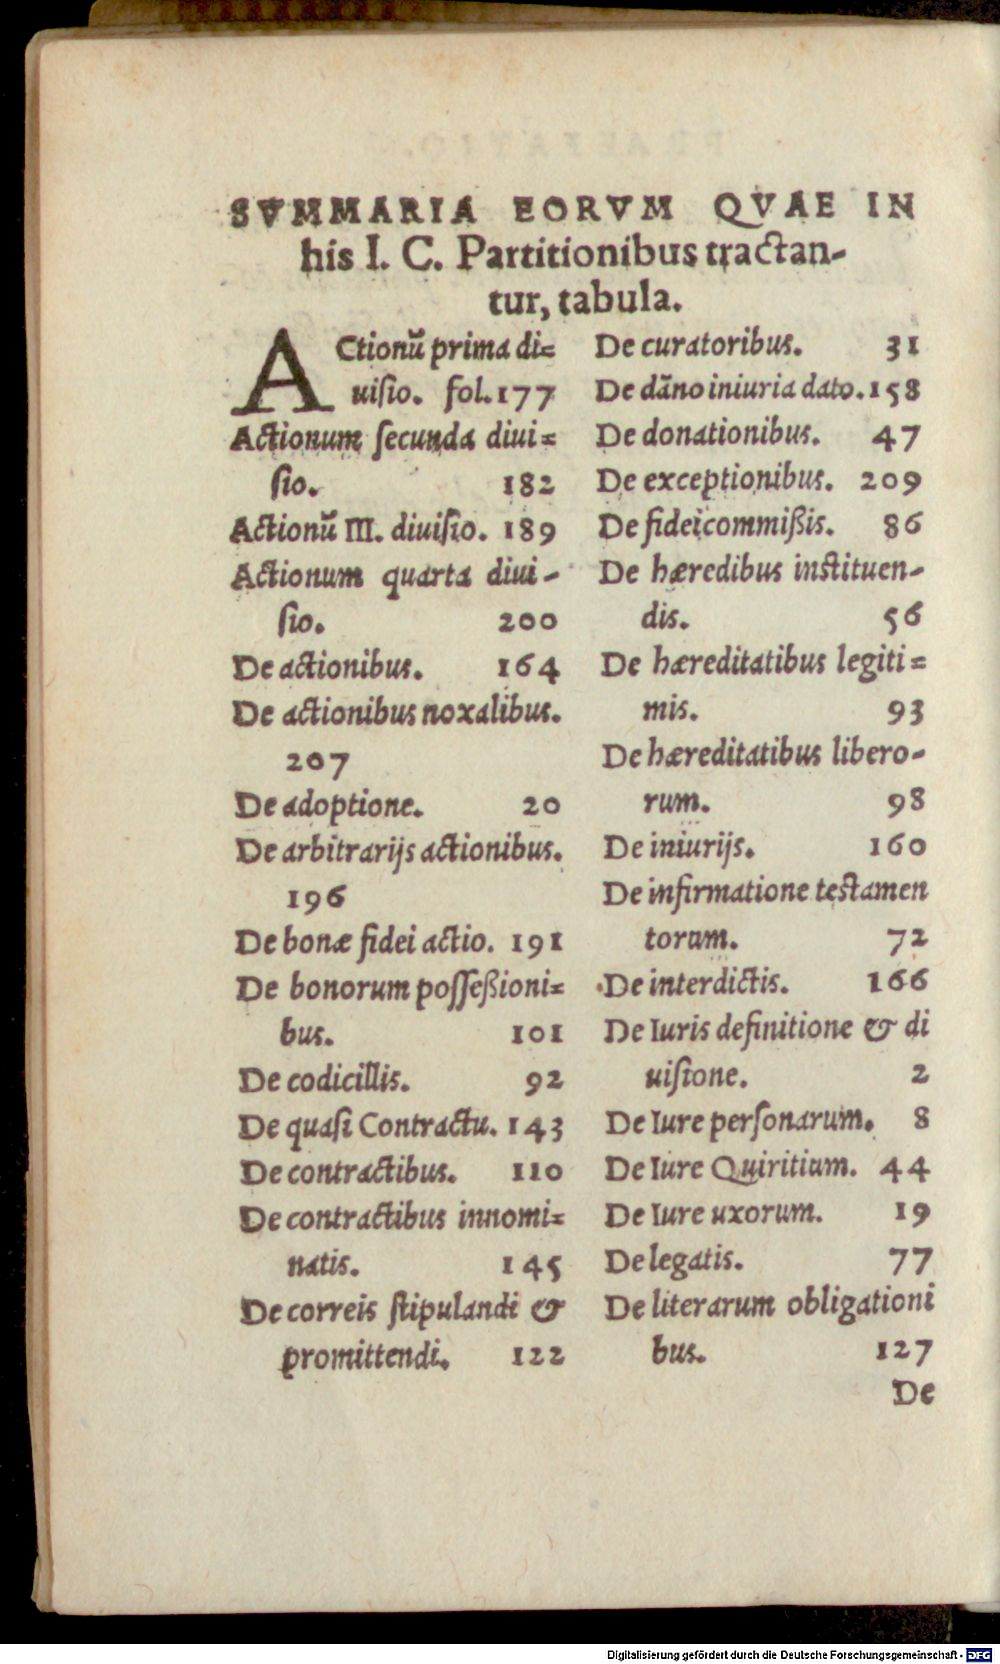 SVMMARIA EORVM QVAE IN
his I. C. Partitionibus tractan-
tur, tabula.
ACtionũ prima di=
uiſio. fol.177
Actionum ſecunda diui=
ſio. 182
Actionũ III. diuiſio. 189
Actionum quarta diui-
ſio. 200
De actionibus. 164
De actionibus noxalibus.
207
De adoptione. 20
De arbitrarijs actionibus.
196
De bonæ fidei actio. 191
De bonorum poſſeßioni=
bus. 101
De codicillis. 92
De quaſi Contractu. 143
De contractibus. 110
De contractibus innomi=
natis. 145
De correis ſtipulandi &
promittendi. 122
De curatoribus. 31
De dãno iniuria dato. 158
De donationibus. 47
De exceptionibus. 209
De fideicommißis. 86
De hæredibus instituen-
dis. 56
De hæreditatibus legiti=
mis. 93
De hæreditatibus libero-
rum. 98
De iniurijs. 160
De infirmatione testamen
torum. 72
De interdictis. 166
De Iuris definitione & di
uiſione. 2
De Iure perſonarum. 8
De Iure Quiritium. 44
De Iure uxorum. 19
De legatis. 77
De literarum obligationi
bus. 127
De
Digitalisierung gefördert durch die Deutsche Forschungsgemeinschaft - DFG